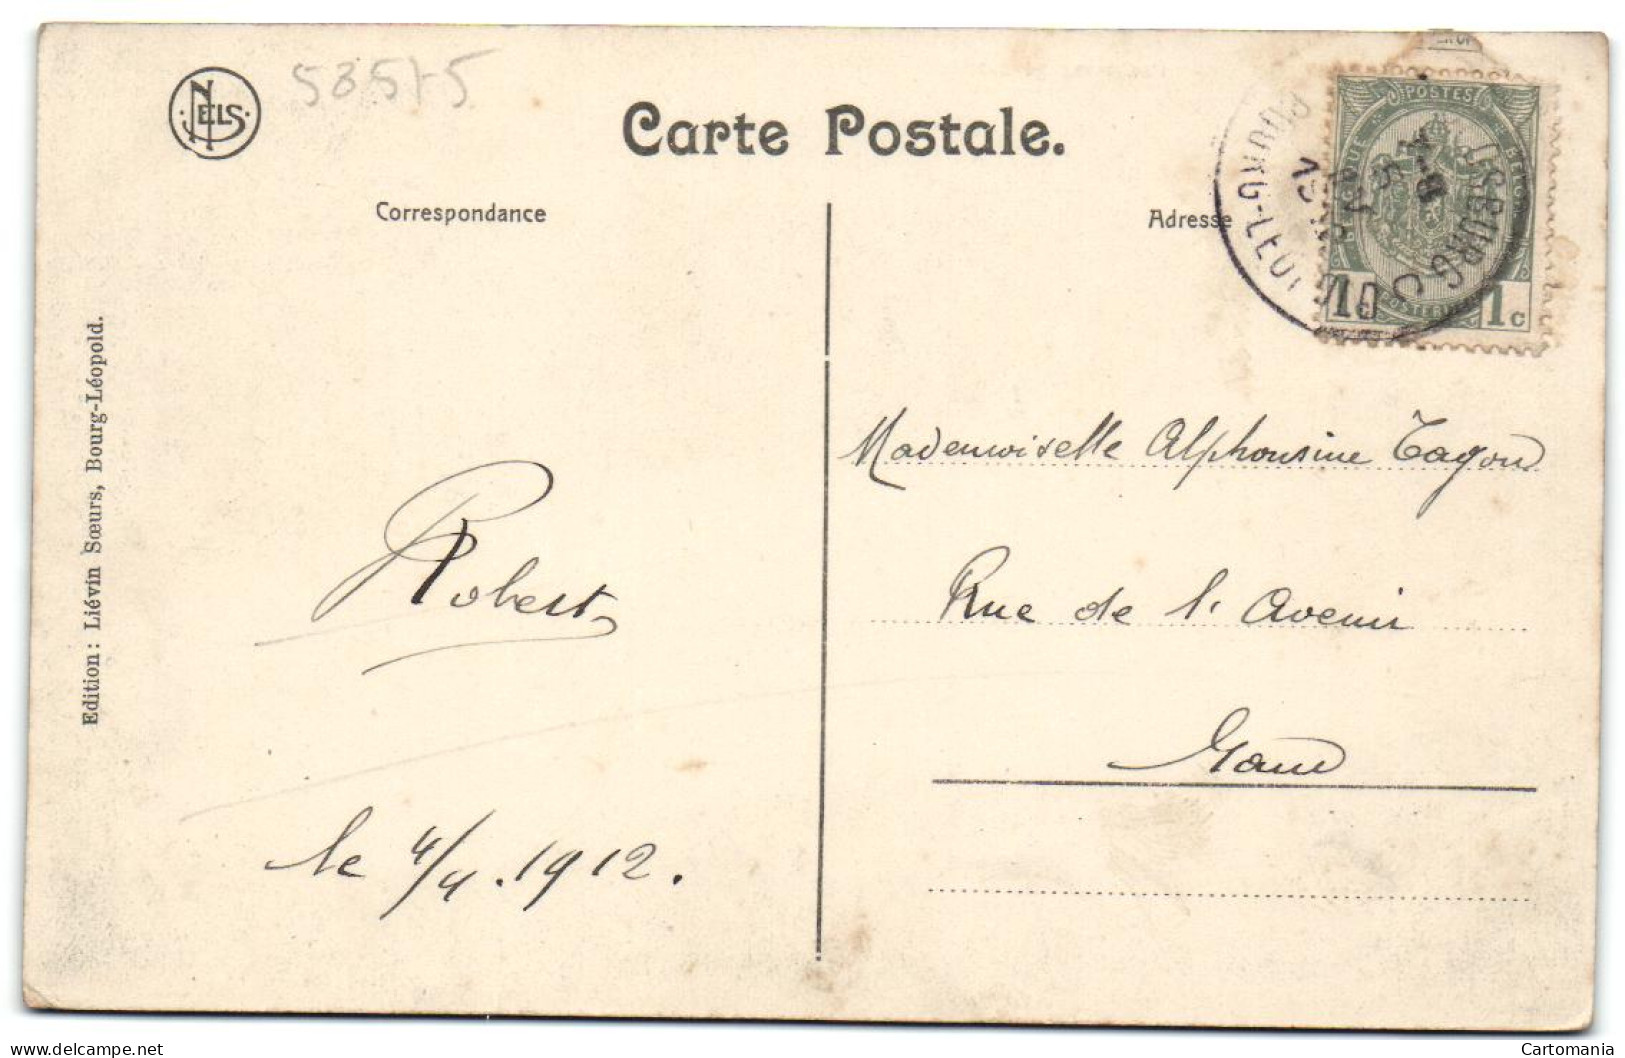 NELS
585 15
Carte Postale.
Correspondance
Adresse
POSTES
1c
BOURG-LEOPOLD
Edition: Liévin Sœurs, Bourg-Léopold.
Mademoiselle Alphonsine Tagon
Rue de l'Avenir
Gand
Robert
le 4/4.1912.
delcampe.net
Cartomania